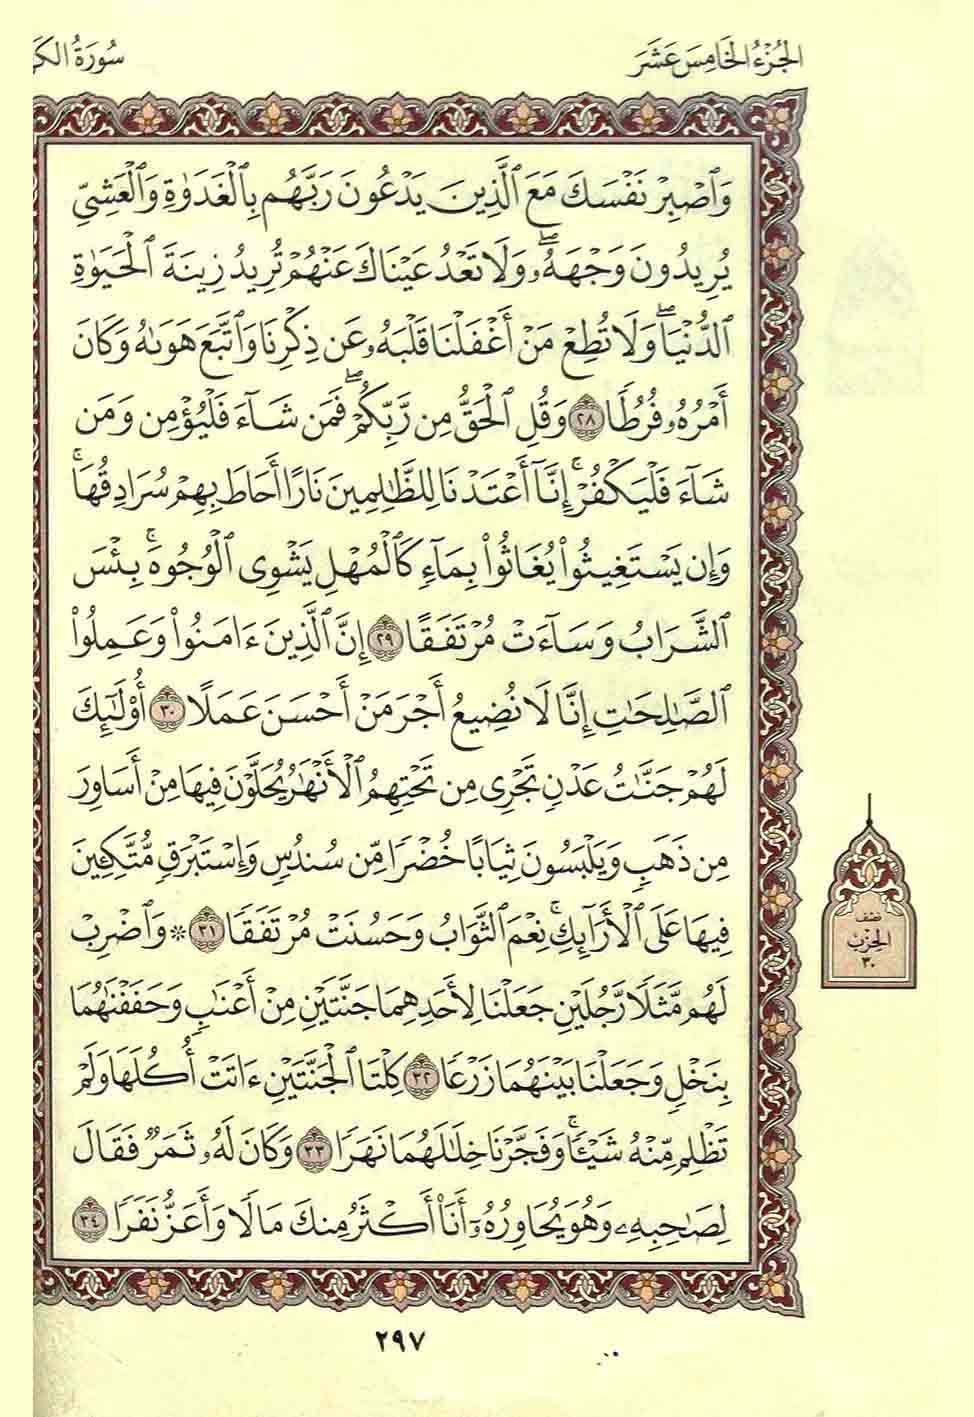 الجُزْءُ الخَامِسَ عَشَرَ
سُورَةُ الكَ
وَٱصۡبِرۡ نَفۡسَكَ مَعَ ٱلَّذِينَ يَدۡعُونَ رَبَّهُم بِٱلۡغَدَوٰةِ وَٱلۡعَشِيِّ
يُرِيدُونَ وَجۡهَهُۥۖ وَلَا تَعۡدُ عَيۡنَاكَ عَنۡهُمۡ تُرِيدُ زِينَةَ ٱلۡحَيَوٰةِ
ٱلدُّنۡيَاۖ وَلَا تُطِعۡ مَنۡ أَغۡفَلۡنَا قَلۡبَهُۥ عَن ذِكۡرِنَا وَٱتَّبَعَ هَوَىٰهُ وَكَانَ
أَمۡرُهُۥ فُرُطٗا ٢٨ وَقُلِ ٱلۡحَقُّ مِن رَّبِّكُمۡۖ فَمَن شَآءَ فَلۡيُؤۡمِن وَمَن
شَآءَ فَلۡيَكۡفُرۡۚ إِنَّآ أَعۡتَدۡنَا لِلظَّٰلِمِينَ نَارًا أَحَاطَ بِهِمۡ سُرَادِقُهَاۚ
وَإِن يَسۡتَغِيثُواْ يُغَاثُواْ بِمَآءٖ كَٱلۡمُهۡلِ يَشۡوِي ٱلۡوُجُوهَۚ بِئۡسَ
ٱلشَّرَابُ وَسَآءَتۡ مُرۡتَفَقًا ٢٩ إِنَّ ٱلَّذِينَ ءَامَنُواْ وَعَمِلُواْ
ٱلصَّٰلِحَٰتِ إِنَّا لَا نُضِيعُ أَجۡرَ مَنۡ أَحۡسَنَ عَمَلًا ٣٠ أُوْلَٰٓئِكَ
لَهُمۡ جَنَّٰتُ عَدۡنٖ تَجۡرِي مِن تَحۡتِهِمُ ٱلۡأَنۡهَٰرُ يُحَلَّوۡنَ فِيهَا مِنۡ أَسَاوِرَ
مِن ذَهَبٖ وَيَلۡبَسُونَ ثِيَابًا خُضۡرٗا مِّن سُندُسٖ وَإِسۡتَبۡرَقٖ مُّتَّكِـِٔينَ
فِيهَا عَلَى ٱلۡأَرَآئِكِۚ نِعۡمَ ٱلثَّوَابُ وَحَسُنَتۡ مُرۡتَفَقٗا ٣١ ۞ وَٱضۡرِبۡ
لَهُم مَّثَلٗا رَّجُلَيۡنِ جَعَلۡنَا لِأَحَدِهِمَا جَنَّتَيۡنِ مِنۡ أَعۡنَٰبٖ وَحَفَفۡنَٰهُمَا
بِنَخۡلٖ وَجَعَلۡنَا بَيۡنَهُمَا زَرۡعٗا ٣٢ كِلۡتَا ٱلۡجَنَّتَيۡنِ ءَاتَتۡ أُكُلَهَا وَلَمۡ
تَظۡلِم مِّنۡهُ شَيۡـٔٗاۚ وَفَجَّرۡنَا خِلَٰلَهُمَا نَهَرٗا ٣٣ وَكَانَ لَهُۥ ثَمَرٞ فَقَالَ
لِصَٰحِبِهِۦ وَهُوَ يُحَاوِرُهُۥٓ أَنَا۠ أَكۡثَرُ مِنكَ مَالٗا وَأَعَزُّ نَفَرٗا ٣٤
نصف
الحِزْبُ
٣٠
٢٩٧